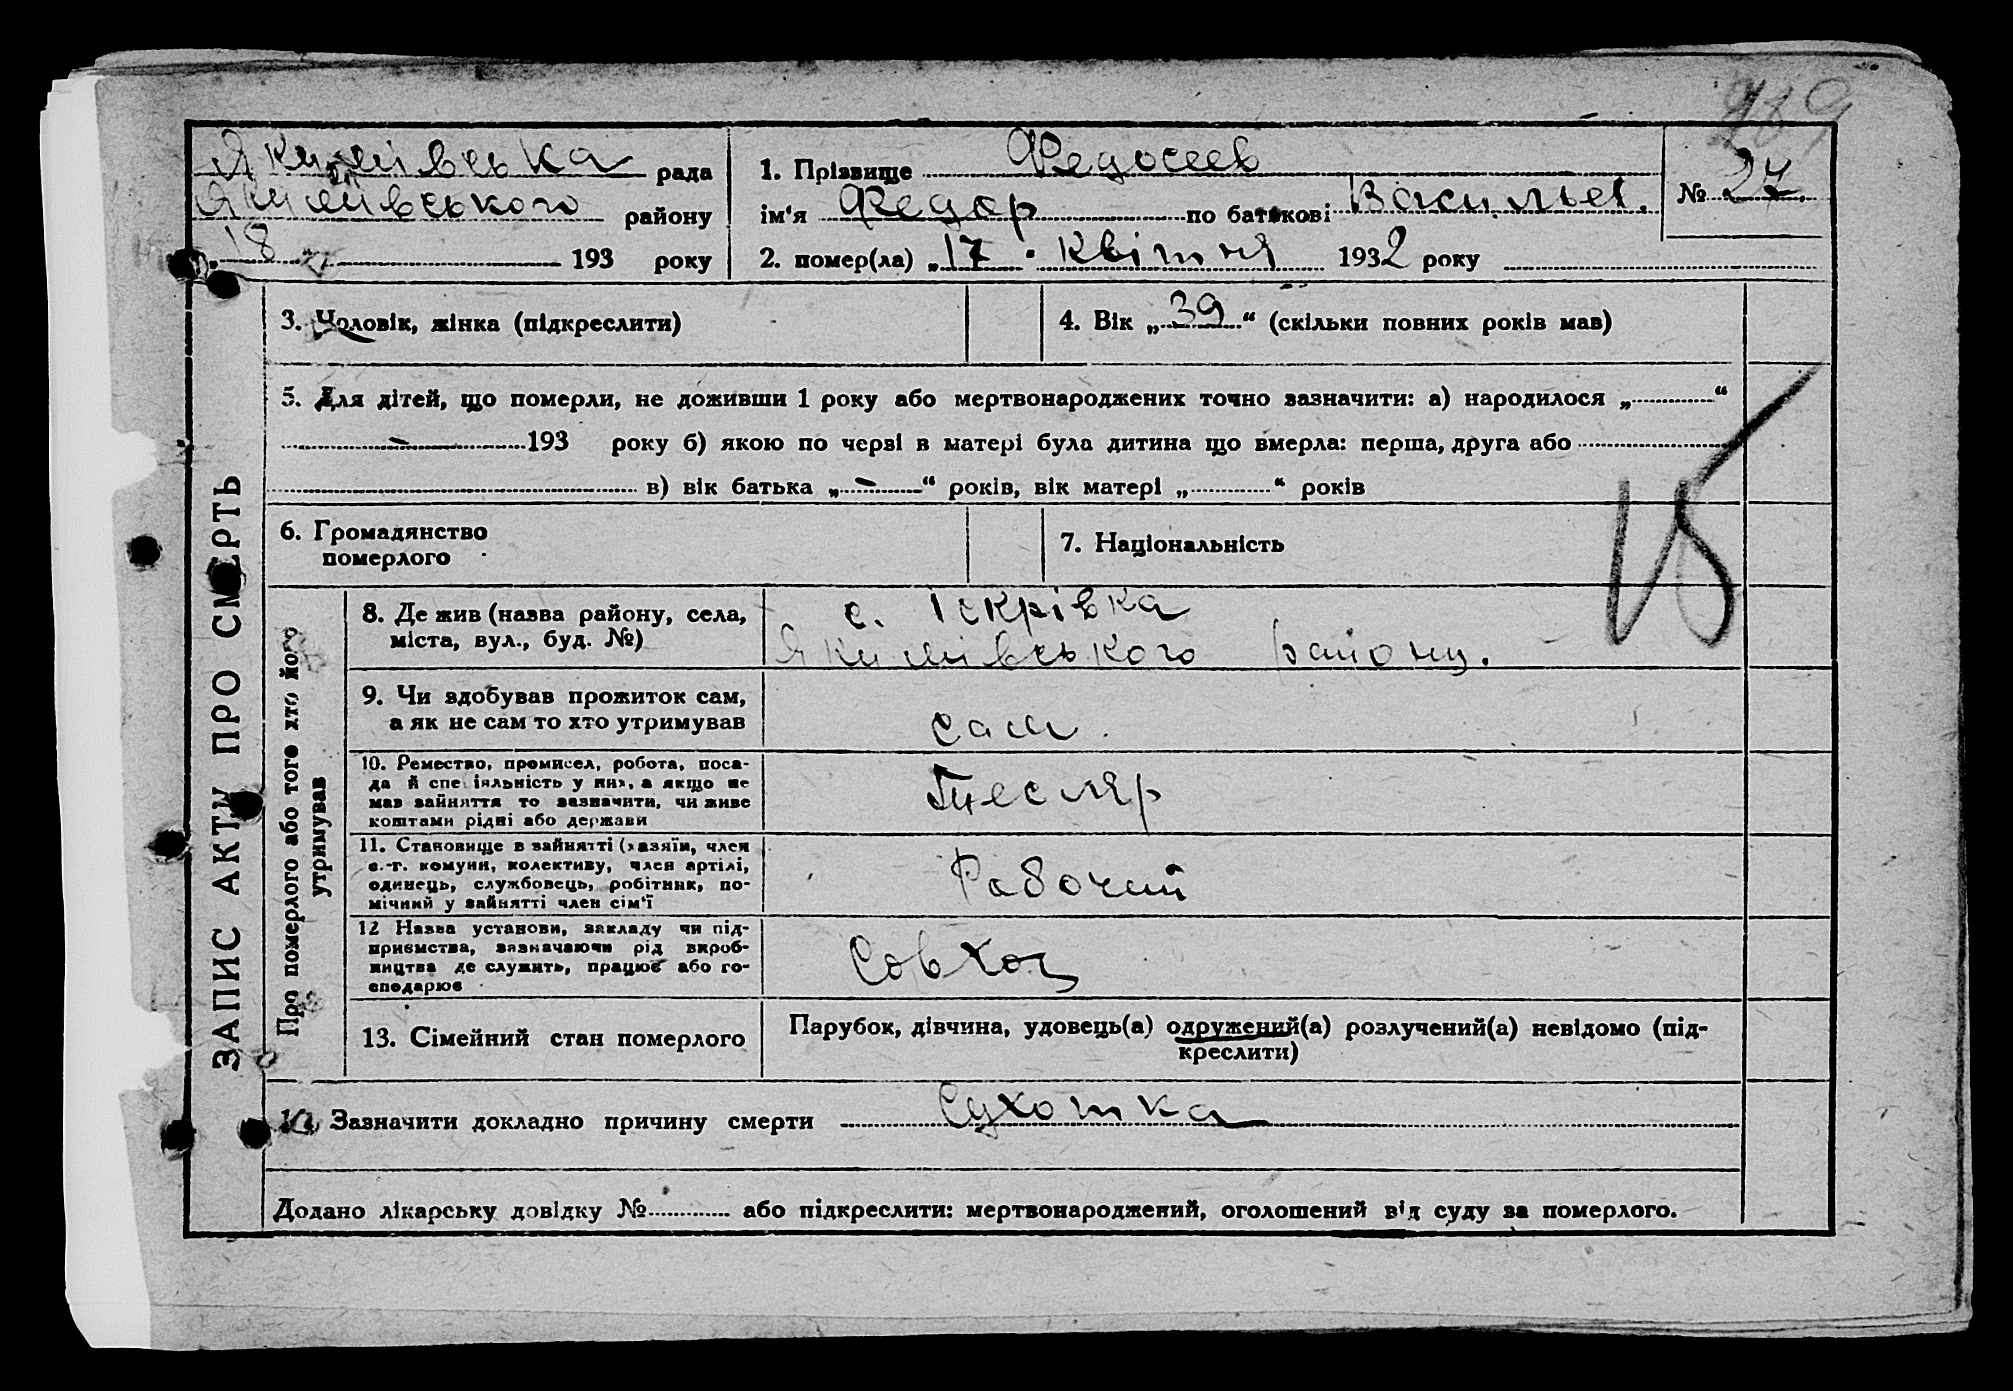 469
Якимівська рада
Якимівського району
18 193 року
1. Прізвище Федосеев
ім'я Федор по батькові Васильев.
№ 27.
2. помер(ла) „17" квітня 1932 року
ЗАПИС АКТУ ПРО СМЕРТЬ
3. Чоловік, жінка (підкреслити)
4. Вік „39" (скільки повних років мав)
5. Для дітей, що померли, не доживши 1 року або мертвонароджених точно зазначити: а) народилося „ “
— 193 року б) якою по черві в матері була дитина що вмерла: перша, друга або
в) вік батька „—“ років, вік матері „ “ років
6. Громадянство
померлого
7. Національність
Про померлого або того хто його
утримував
8. Де жив (назва району, села,
міста, вул., буд. №)
с. Іскрівка
Якимівського району.
9. Чи здобував прожиток сам,
а як не сам то хто утримував
сам.
10. Ремество, промисел, робота, поса-
да й спеціяльність у них, а якщо не
мав зайняття то зазначити, чи живе
коштами рідні або держави
Тесляр
11. Становище в зайнятті (хазяїн, член
с.-г. комуни, колективу, член артілі,
одинець, службовець, робітник, по-
мічний у зайнятті член сім'ї
Рабочий
12 Назва установи, закладу чи під-
приємства, зазначаючи рід вироб-
ництва де служить, працює або го-
сподарює
Совхоз
13. Сімейний стан померлого
Парубок, дівчина, удовець(а) одружений(а) розлучений(а) невідомо (під-
креслити)
14 Зазначити докладно причину смерти Сухотка
Додано лікарську довідку № або підкреслити: мертвонароджений, оголошений від суду за померлого.